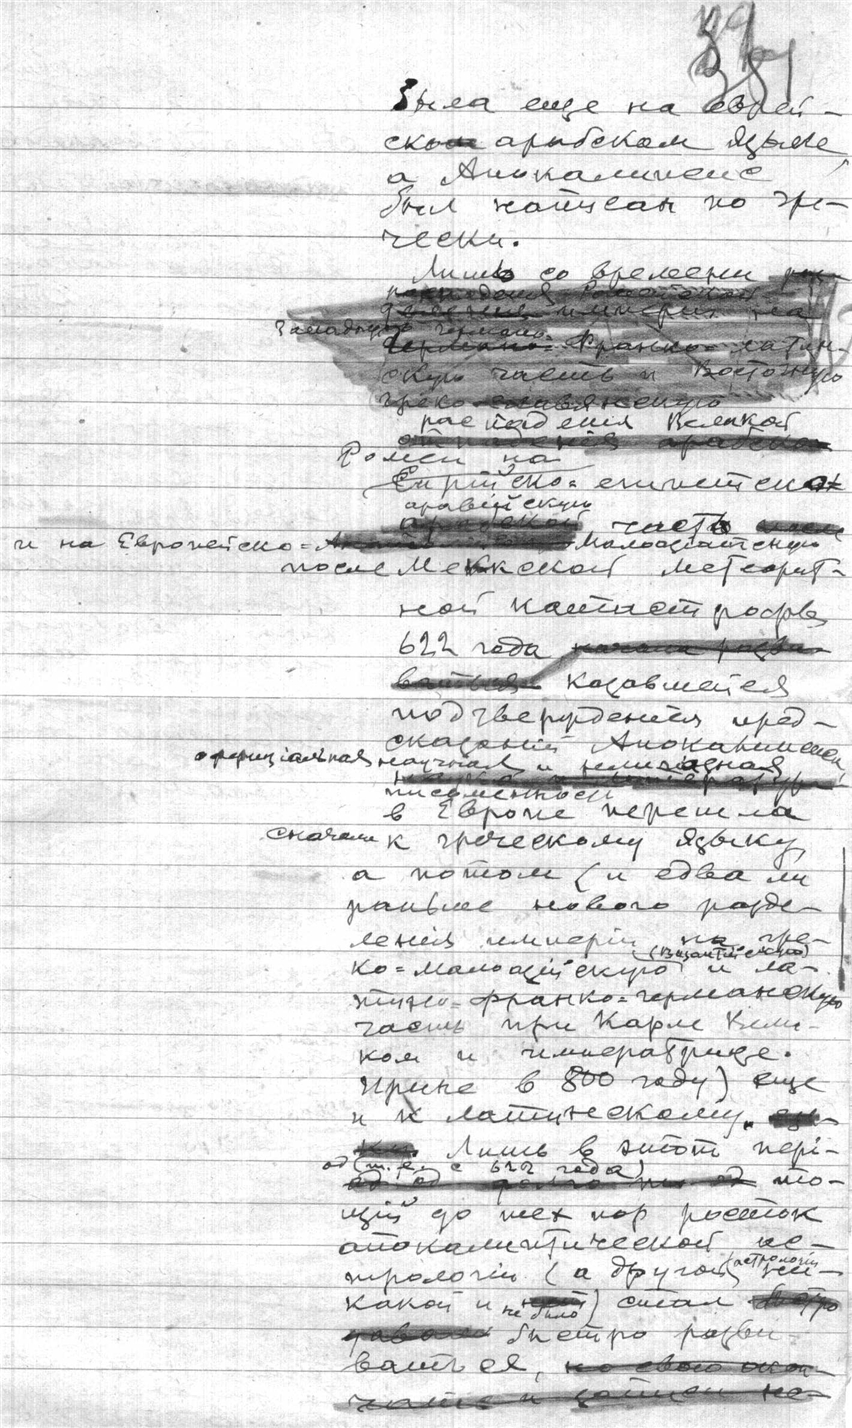 была еще на еврей-
ском арабском языке,
а Апокалипсис
был написан по гре-
чески.
Лишь со времени
империи на
Западную германо-
Франко-латин-
скую часть и Восточную
греко-славянскую
распадения Великой
Ромеи на
Сирийско=египетско-
аравийскую
часть
и на Европейско= Малоазіатскую
после Меккской метеорит-
ной катастрофы
622 года
казавшейся
подтверждением пред-
сказаний Апокалипсиса,
официіальная научная и религиозная
письменность
в Европе перешла
сначала к греческому языку,
а потом (и едва ли
раньше нового разде-
ленія имперіи на гре-
(Византійскую)
ко=малоазійскую и ла-
тино=франко=германскую
часть при Карле Вели-
ком и императрице
Ирине в 800 году) еще
и к латинскому.
Лишь в этот пері-
од (т.е. с 622 года)
то-
щій до тех пор росток
апокалиптической ас-
трологіи (а другой астрологіи ни-
какой и не было) стал
быстро разви-
ваться,